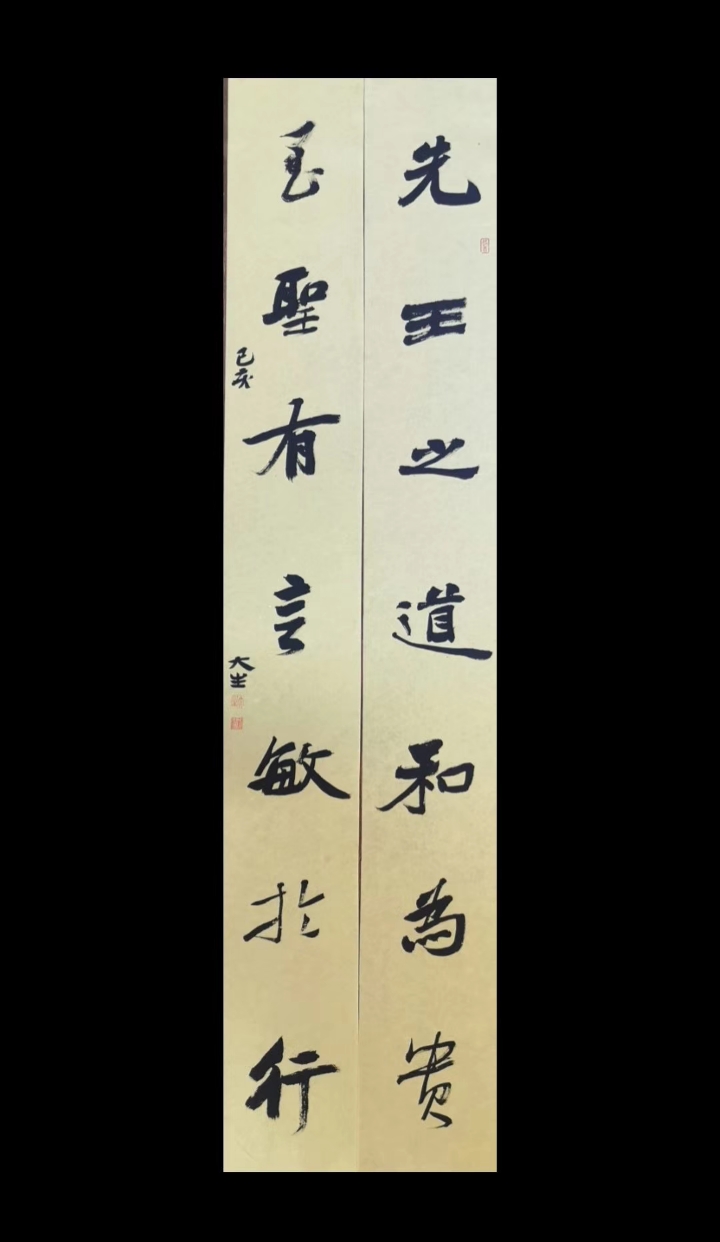 先王之道和為貴
至聖有言敏於行
己亥
大生